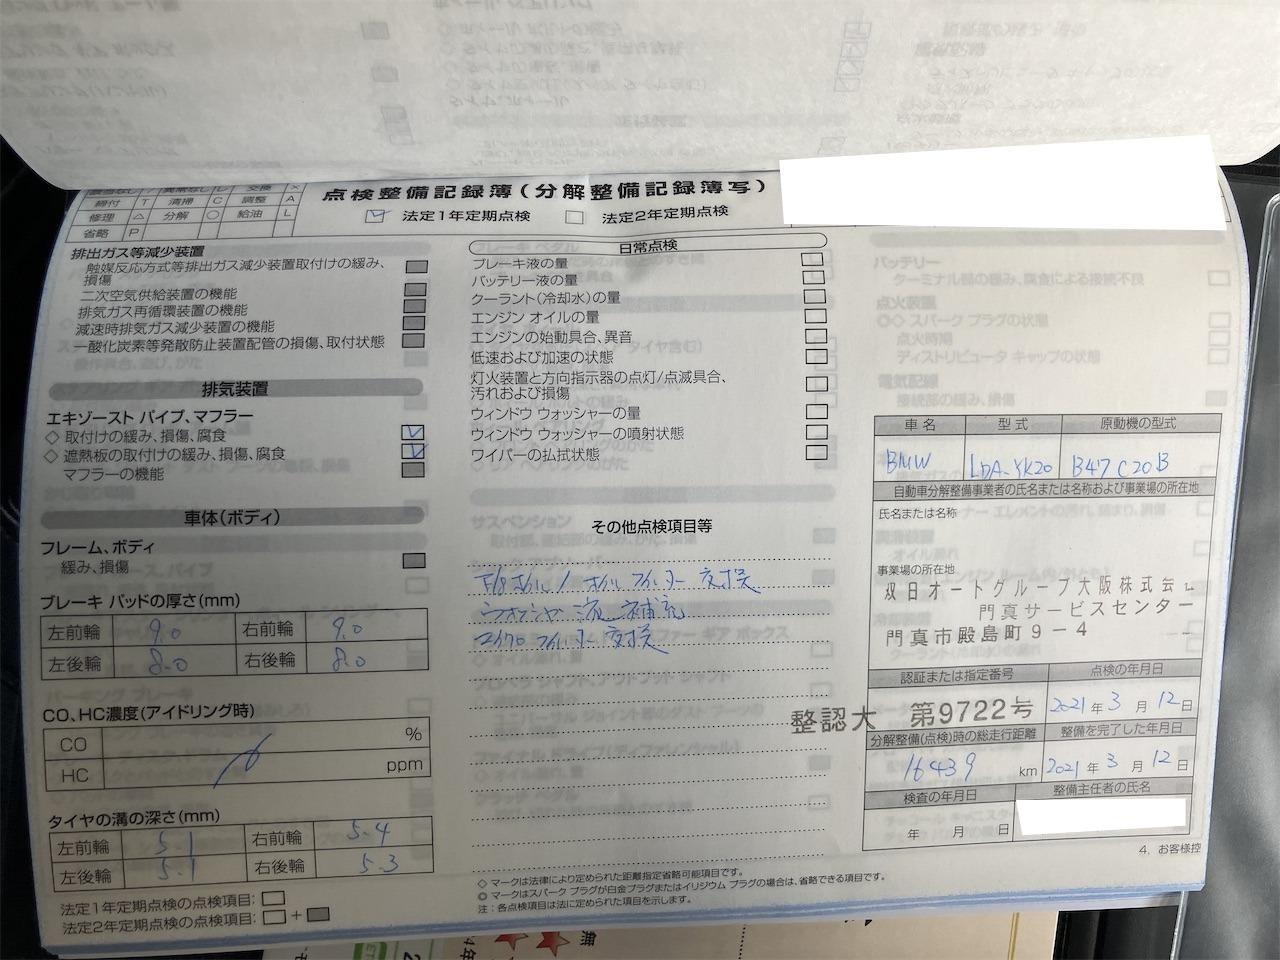 締付 T 清掃 C 調整 A
修理 △ 分解 ○ 給油 L
省略 P
点検整備記録簿(分解整備記録簿写)
法定1年定期点検 法定2年定期点検
排出ガス等減少装置
触媒反応方式等排出ガス減少装置取付けの緩み、
損傷
二次空気供給装置の機能
排気ガス再循環装置の機能
減速時排気ガス減少装置の機能
一酸化炭素等発散防止装置配管の損傷、取付状態
排気装置
エキゾースト パイプ、マフラー
◇ 取付けの緩み、損傷、腐食
◇ 遮熱板の取付けの緩み、損傷、腐食
マフラーの機能
車体(ボディ)
フレーム、ボディ
緩み、損傷
ブレーキ パッドの厚さ(mm)
左前輪 9.0 右前輪 9.0
左後輪 8.0 右後輪 8.0
CO、HC濃度(アイドリング時)
CO %
HC ppm
タイヤの溝の深さ(mm)
左前輪 5.1 右前輪 5.4
左後輪 5.1 右後輪 5.3
法定1年定期点検の点検項目:
法定2年定期点検の点検項目: +
日常点検
ブレーキ液の量
バッテリー液の量
クーラント(冷却水)の量
エンジン オイルの量
エンジンの始動具合、異音
低速および加速の状態
灯火装置と方向指示器の点灯/点滅具合、
汚れおよび損傷
ウィンドウ ウォッシャーの量
ウィンドウ ウォッシャーの噴射状態
ワイパーの払拭状態
その他点検項目等
オイル フィルター 交換
ウォッシャー液 補充
マイクロフィルター 交換
◇ マークは法律により定められた距離指定省略可能項目です。
◎ マークはスパーク プラグが白金プラグまたはイリジウム プラグの場合は、省略できる項目です。
注:各点検項目は法に定められた項目を示します。
バッテリー
ターミナル部の緩み、腐食による接続不良
点火装置
◎◇ スパーク プラグの状態
点火時期
ディストリビュータ キャップの状態
電気配線
接続部の緩み、損傷
車名 型式 原動機の型式
BMW LDA-YK20 B47C20B
自動車分解整備事業者の氏名または名称および事業場の所在地
氏名または名称
事業場の所在地
双日オートグループ大阪株式会社
門真サービスセンター
門真市殿島町9-4
認証または指定番号 点検の年月日
整認大 第9722号 2021年3月12日
分解整備(点検)時の総走行距離 整備を完了した年月日
16439 km 2021年3月12日
検査の年月日 整備主任者の氏名
年 月 日
4. お客様控